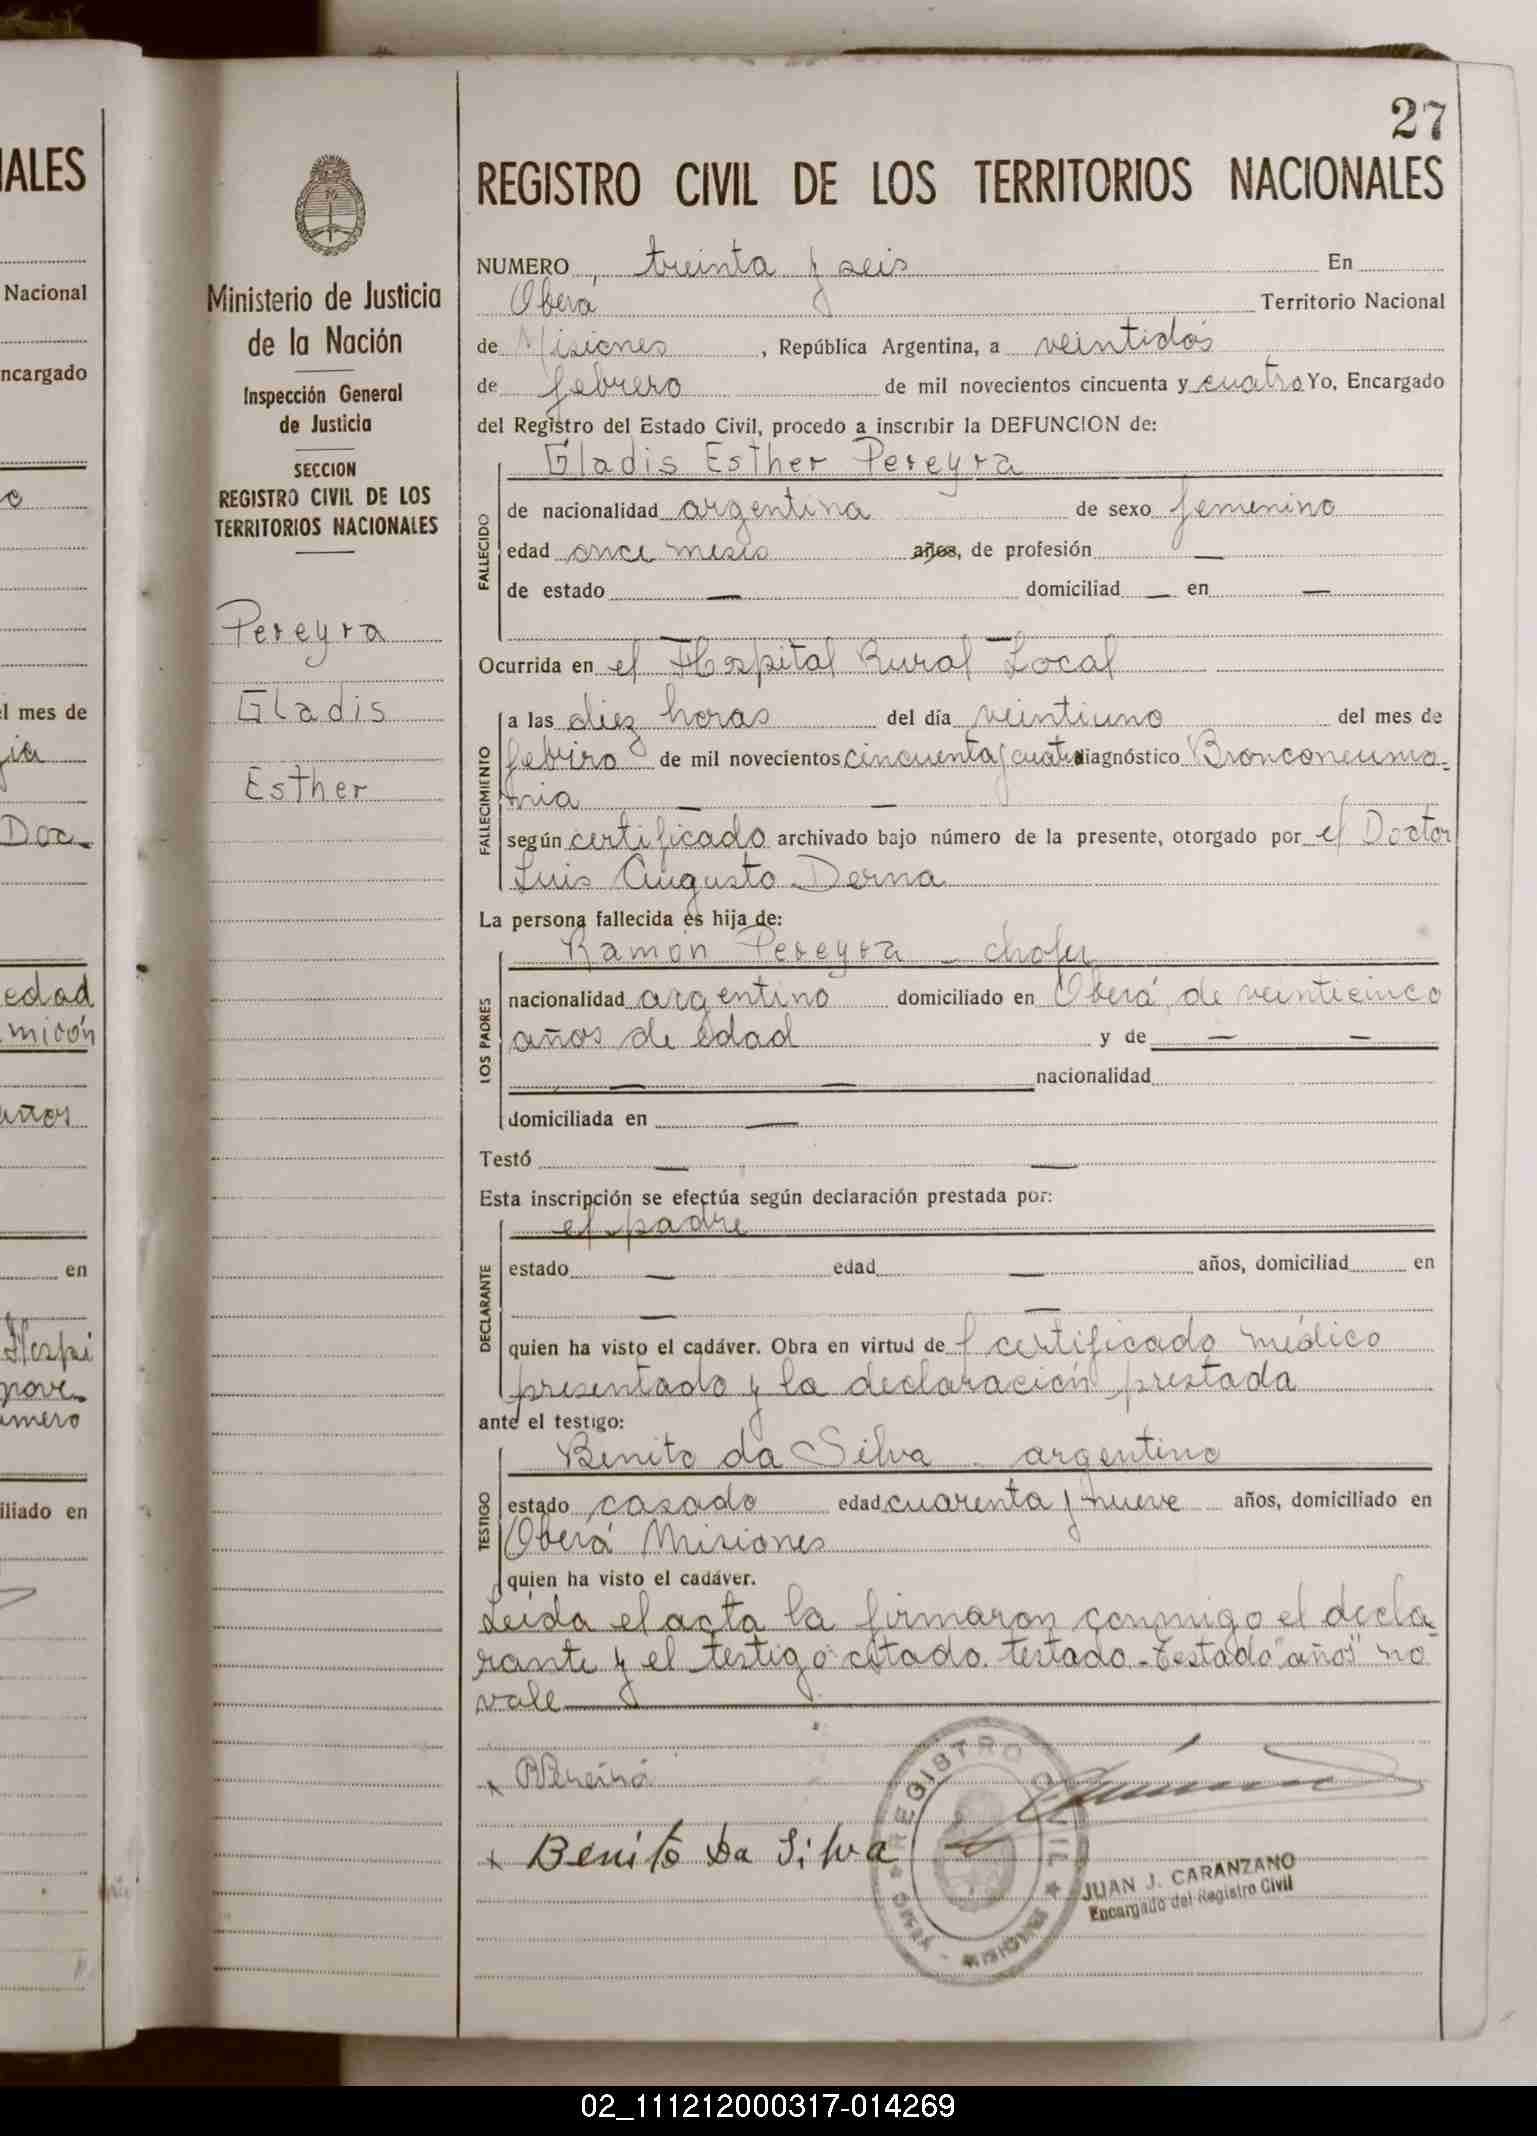 IALES
Nacional
ncargado
el mes de
Doc-
edad
años
en
Hospi
nove
iliado en
Ministerio de Justicia
de la Nación
Inspección General
de Justicia
SECCION
REGISTRO CIVIL DE LOS
TERRITORIOS NACIONALES
Pereyra
Gladis
Esther
27
REGISTRO CIVIL DE LOS TERRITORIOS NACIONALES
NUMERO treinta y seis En
Oberá Territorio Nacional
de Misiones, República Argentina, a veintidós
de febrero de mil novecientos cincuenta y cuatro Yo, Encargado
del Registro del Estado Civil, procedo a inscribir la DEFUNCION de:
Gladis Esther Pereyra
FALLECIDO
de nacionalidad argentina de sexo femenino
edad once meses años, de profesión —
de estado — domiciliad — en —
— —
Ocurrida en el Hospital Rural Local
FALLECIMIENTO
a las diez horas del día veintiuno del mes de
febrero de mil novecientos cincuenta y cuatro diagnóstico Bronconeumo-
nia — —
según certificado archivado bajo número de la presente, otorgado por el Doctor
Luis Augusto Derna
La persona fallecida es hija de:
LOS PADRES
Ramon Pereyra - chofer
nacionalidad argentino domiciliado en Oberá, de veinticinco
años de edad y de — —
— — nacionalidad
domiciliada en —
Testó — —
Esta inscripción se efectúa según declaración prestada por:
DECLARANTE
el padre
estado — edad — años, domiciliad en
— —
quien ha visto el cadáver. Obra en virtud del certificado médico
presentado y la declaración prestada
ante el testigo:
TESTIGO
Benito da Silva - argentino
estado casado edad cuarenta y nueve años, domiciliado en
Oberá Misiones
quien ha visto el cadáver.
Leída el acta la firmaron conmigo el decla-
rante y el testigo citado. testado - Testado "años" no
vale
x
x Benito Da Silva
REGISTRO CIVIL
OBERÁ - MISIONES
JUAN J. CARANZANO
Encargado del Registro Civil
02_111212000317-014269